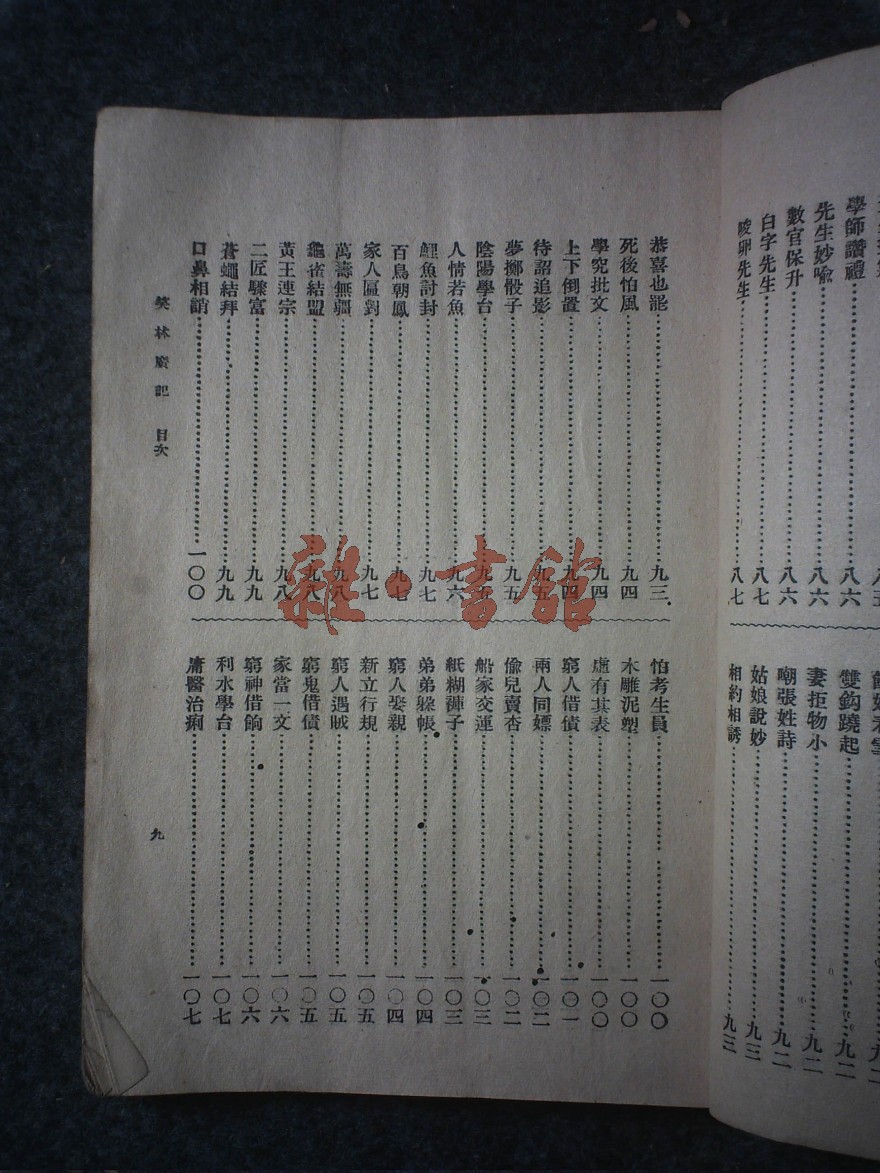 學師讚禮……八六
先生妙喩……八六
數官保升……八六
白字先生……八七
陵卵先生……八七
雙鈎蹺起……九二
妻拒物小……九二
嘲張姓詩……九二
姑娘說妙……九三
相約相誘……九三
恭喜也罷……九三
死後怕風……九四
學究批文……九四
上下倒置……九四
待詔追影……九五
夢擲骰子……九五
陰陽學台……九五
人情若魚……九六
鯉魚討封……九七
百鳥朝鳳……九七
家人匾對……九七
萬壽無疆……九八
龜雀結盟……九八
黃王連宗……九八
二匠驟富……九九
蒼蠅結拜……九九
口鼻相誚……一〇〇
怕考生員……一〇〇
木雕泥塑……一〇〇
虛有其表……一〇〇
窮人借債……一〇一
兩人同嫖……一〇二
偸兒賣杏……一〇二
船家交運……一〇三
紙糊褲子……一〇三
弟弟躲帳……一〇四
窮人娶親……一〇四
新立行規……一〇五
窮人遇賊……一〇五
窮鬼借債……一〇五
家當一文……一〇六
窮神借餉……一〇六
利水學台……一〇七
庸醫治痢……一〇七
笑林廣記 目次
九
雜·書館